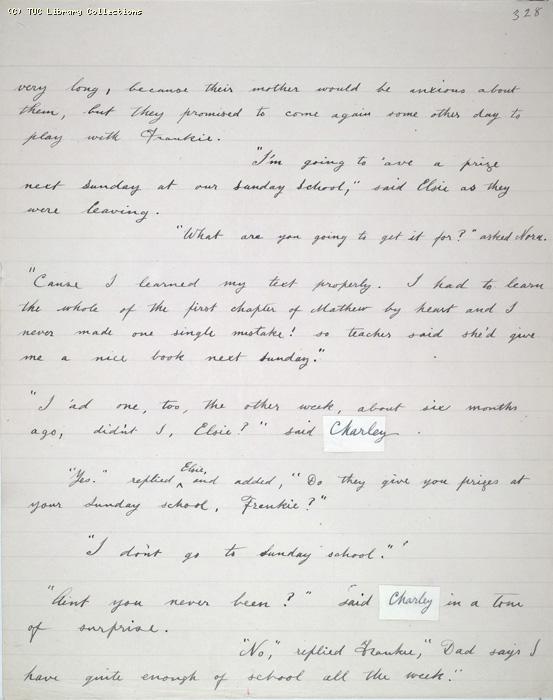 (C) TUC Library Collections
328
very long, because their mother would be anxious about
them, but they promised to come again some other day to
play with Frankie.
"I'm going to 'ave a prize
next Sunday at our Sunday School," said Elsie as they
were leaving.
"What are you going to get it for?" asked Nora.
"Cause I learned my text properly. I had to learn
the whole of the first chapter of Mathew by heart and I
never made one single mistake! so teacher said she'd give
me a nice book next Sunday."
"I 'ad one, too, the other week, about six months
ago, didn't I, Elsie?" said Charley.
"Yes." replied Elsie, and added, "Do they give you prizes at
your Sunday school, Frankie?"
"I don't go to Sunday school."
"Aint you never been?" said Charley in a tone
of surprise.
"No," replied Frankie," Dad says I
have quite enough of school all the week."